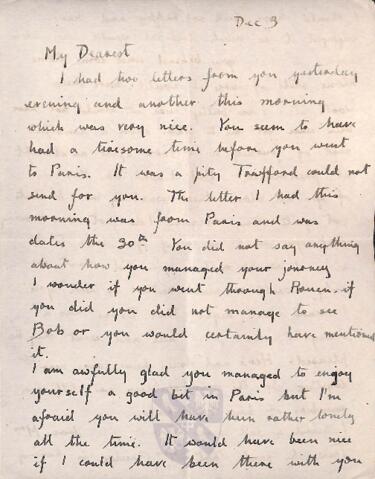 Dec 3
My Dearest
I had two letters from you yesterday
evening and another this morning
which was very nice. You seem to have
had a tiresome time before you went
to Paris. It was a pity Trafford could not
send for you. The letter I had this
morning was from Paris and was
dated the 30th You did not say anything
about how you managed your journey
I wonder if you went through Rouen. if
you did you did not manage to see
Bob or you would certainly have mentioned
it.
I am awfully glad you managed to enjoy
yourself a good bit in Paris but I'm
afraid you will have been rather lonely
all the time. It would have been nice
if I could have been there with you